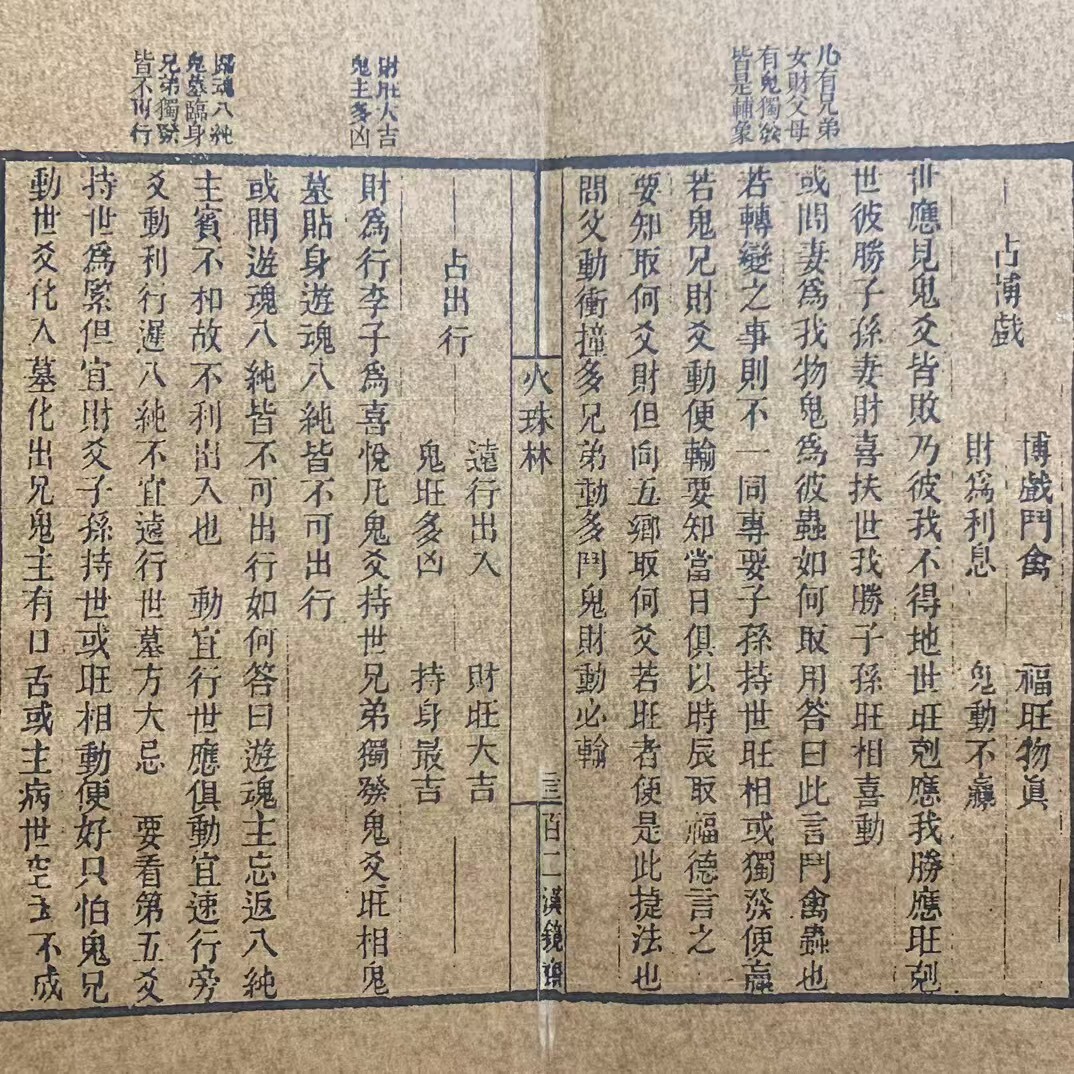 凡有兄弟
女財父母
有鬼獨發
皆是輔象
占博戲
博戲鬥禽　福旺物眞
財爲利息　鬼動不贏
世應見鬼爻皆敗乃彼我不得地世旺剋應我勝應旺剋
世彼勝子孫妻財喜扶世我勝子孫旺相喜動
或問妻爲我物鬼爲彼蟲如何取用答曰此言鬥禽蟲也
若轉變之事則不一同專要子孫持世旺相或獨發便贏
若鬼兄財爻動便輸要知當日俱以時辰取福德言之
要知取何爻財但向五鄉取何爻若旺者便是此捷法也
問父動衝撞多兄弟動多鬥鬼財動必輸
火珠林
三百二
漢鏡齋
財旺大吉
鬼主多凶
歸魂八純
鬼墓臨身
兄弟獨發
皆不可行
占出行
遠行出入　財旺大吉
鬼旺多凶　持身最吉
財爲行李子爲喜悅凡鬼爻持世兄弟獨發鬼爻旺相鬼
墓貼身遊魂八純皆不可出行
或問遊魂八純皆不可出行如何答曰遊魂主忘返八純
主賓不和故不利出入也　動宜行世應俱動宜速行旁
爻動利行遲八純不宜遠行世墓方大忌　要看第五爻
持世爲緊但宜財爻子孫持世或旺相動便好只怕鬼兄
動世爻化入墓化出兄鬼主有口舌或主病世空主不成